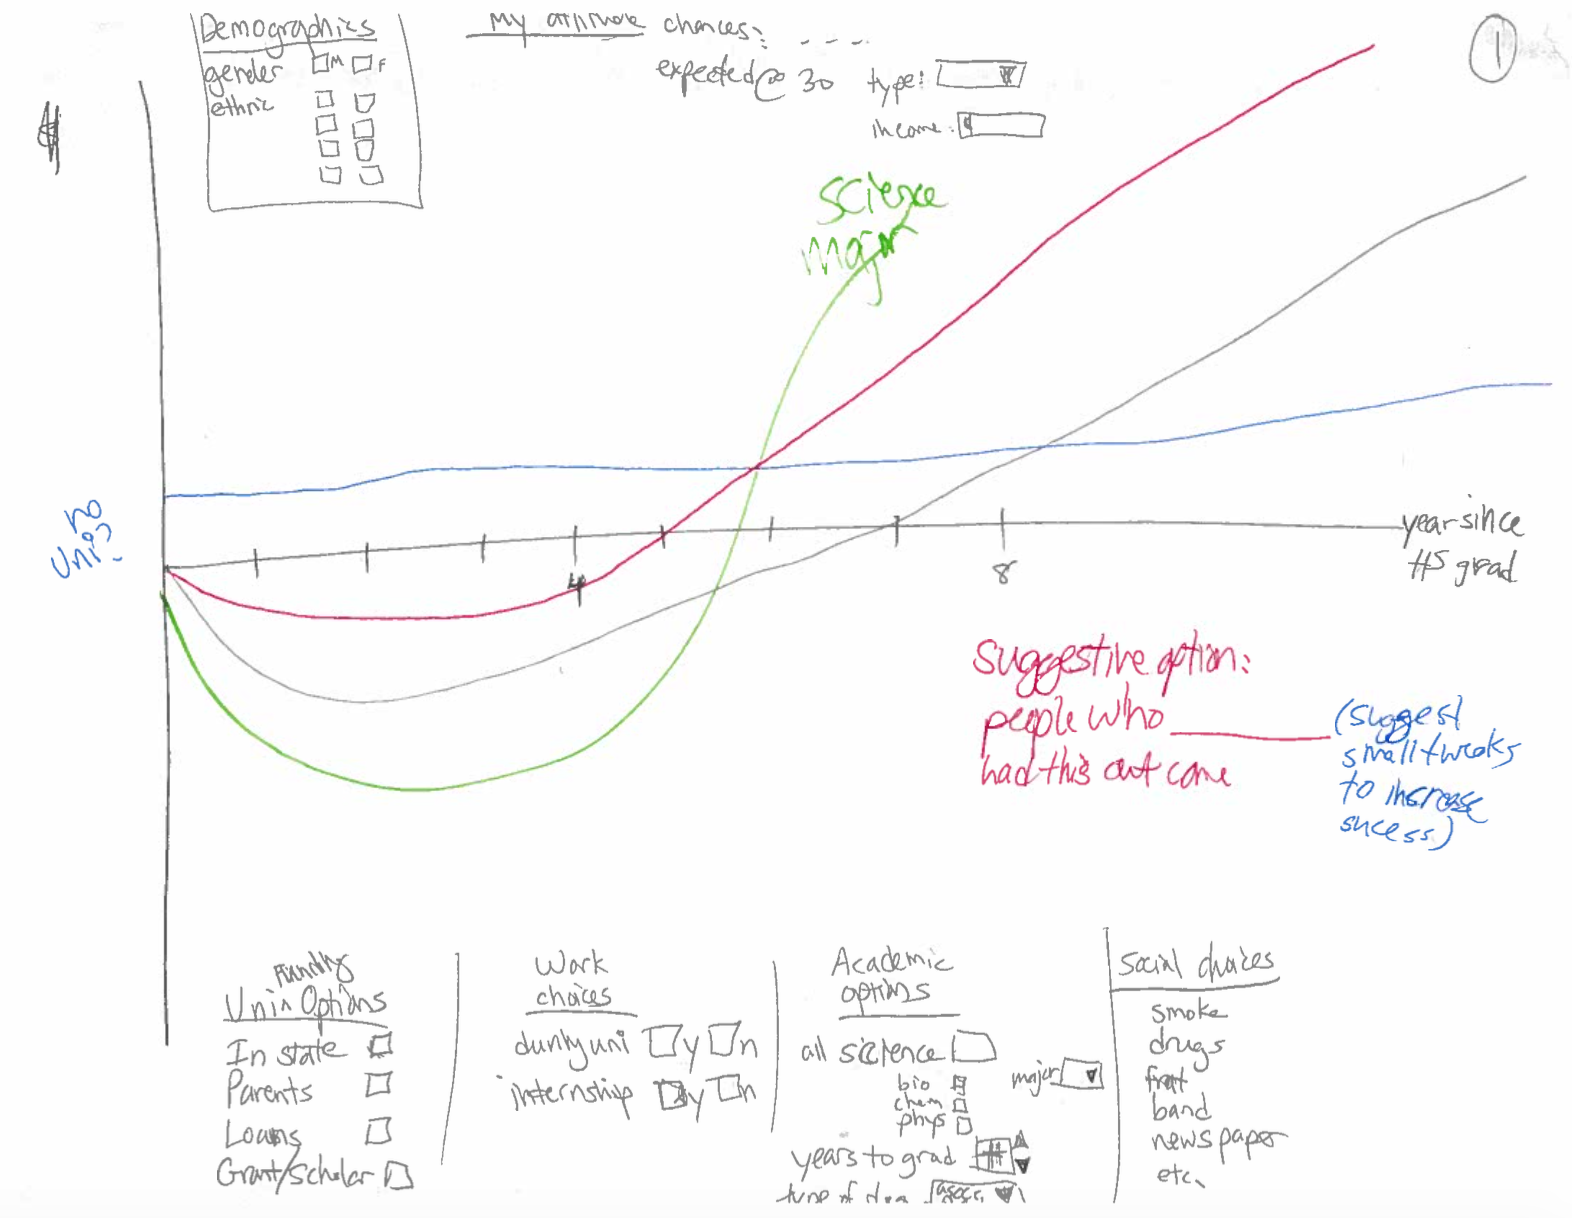 Demographics
gender M F
ethnic
My attitude chances: - - - -
expected @ 30 type:
income:
1
$
science
major
no
Uni?
4
8
year since
HS grad
suggestive option:
people who ________
had this out come
(suggest
small tweaks
to increase
sucess)
Funding
Uni Options
In state
Parents
Loans
Grant/Scholar
Work
choices
during uni y n
internship y n
Academic
options
all science
bio
chem
phys
major
years to grad #
type of
Social choices
smoke
drugs
frat
band
newspaper
etc.